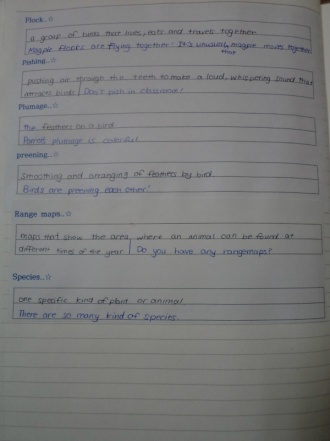 Flock..☆
a group of birds that lives, eats and travels together
Magpie flocks are flying together! It's unusual, magpie moves together
that
Pishing..☆
pushing air through the teeth to make a loud, whispering sound that
attracts birds | Don't pish in classroom!
Plumage..☆
the feathers on a bird
Parrots plumage is colorful.
preening..☆
Smoothing and arranging of feathers by bird
Birds are preening each other!
Range maps..☆
maps that show the area, where an animal can be found at
different times of the year | Do you have any rangemaps?
Species..☆
one specific kind of plant or animal
There are so many kind of species.